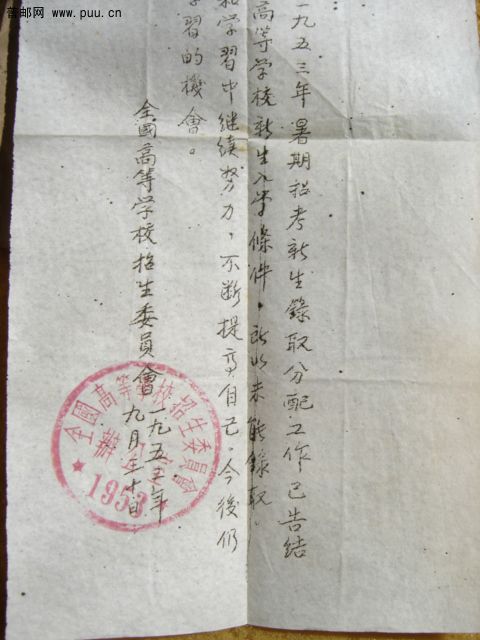 普邮网
www.puu.cn
一九五三年暑期招考新生錄取分配工作已告結
高等学校新生入学條件，所以未能錄取，
和学習中继续努力，不断提高自己，今後仍
学習的機會。
全國高等学校招生委員會
一九五三年
九月二十日
全國高等學校招生委員會
1953